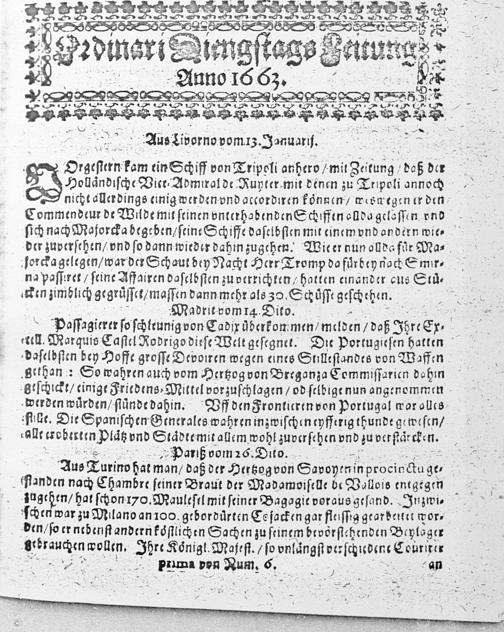 Ordinari Diengstags Zeitung
Anno 1663.
Aus Livorno vom 13. Januarij.
VOrgestern kam ein Schiff von Tripoli anhero / mit Zeitung / daß der
Holländische Vice-Admiral de Ruyter mit denen zu Tripoli annoch
nicht allerdings einig werden und accordiren können / weswegen er den
Commendeur de Wilde mit seinen unterhabenden Schiffen allda gelassen und
sich nach Majorcka begeben / seine Schiffe daselbsten mit einem und andern wie-
der zuversehen / und so dann wieder dahin zugehen. Wie er nun allda für Ma-
jorcka gelegen / war der Schaut bey Nacht Herr Tromp dafür bey nach Smir-
na passiret / seine Affairen daselbsten zu verrichten / hatten einander aus Stü-
cken zimblich gegrüsset / massen dann mehr als 30. Schüsse geschehen.
Madrit vom 14. Dito.
Passagierer so schleunig von Cadix überkommen / melden / daß Ihre Ex-
cell. Marquis Castel Rodrigo diese Welt gesegnet. Die Portugiesen hatten
daselbsten bey Hoffe grosse Devoiren wegen eines Stillestandes von Waffen
gethan : So wahren auch vom Hertzog von Breganza Commissarien dahin
geschickt / einige Friedens-Mittel vorzuschlagen / ob selbige nun angenommen
werden würden / stünde dahin. Uff den Frontieren von Portugal war alles
stille. Die Spanischen Generales wahren inzwischen eyfferig thunde gewesen /
alle eroberten Plätz und Städte mit allem wohl zuversehen und zu verstärcken.
Pariß vom 26. Dito.
Aus Turino hat man / daß der Hertzog von Savoyen in procinctu ge-
standen nach Chambre seiner Braut der Madamoiselle de Vallois entgegen
zugehen / hat schon 170. Maulesel mit seiner Bagagie voraus gesand. Inzwi-
schen war zu Milano an 100. gebordürten Casjacken gar fleissig gearbeitet wor-
den / so er nebenst andern köstlichen Sachen zu seinem bevorstehenden Beylager
gebrauchen wollen. Ihre Königl. Majest. / so unlängst verschiedene Courirer
prima von Num. 6. an